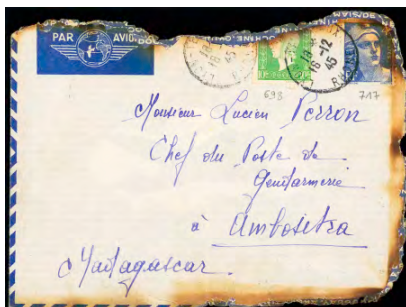 PAR AVION
16-12
45
16-12
45
698
717
Monsieur Lucien Perron
Chef du Poste de
Gendarmerie
à Ambositra
Madagascar.